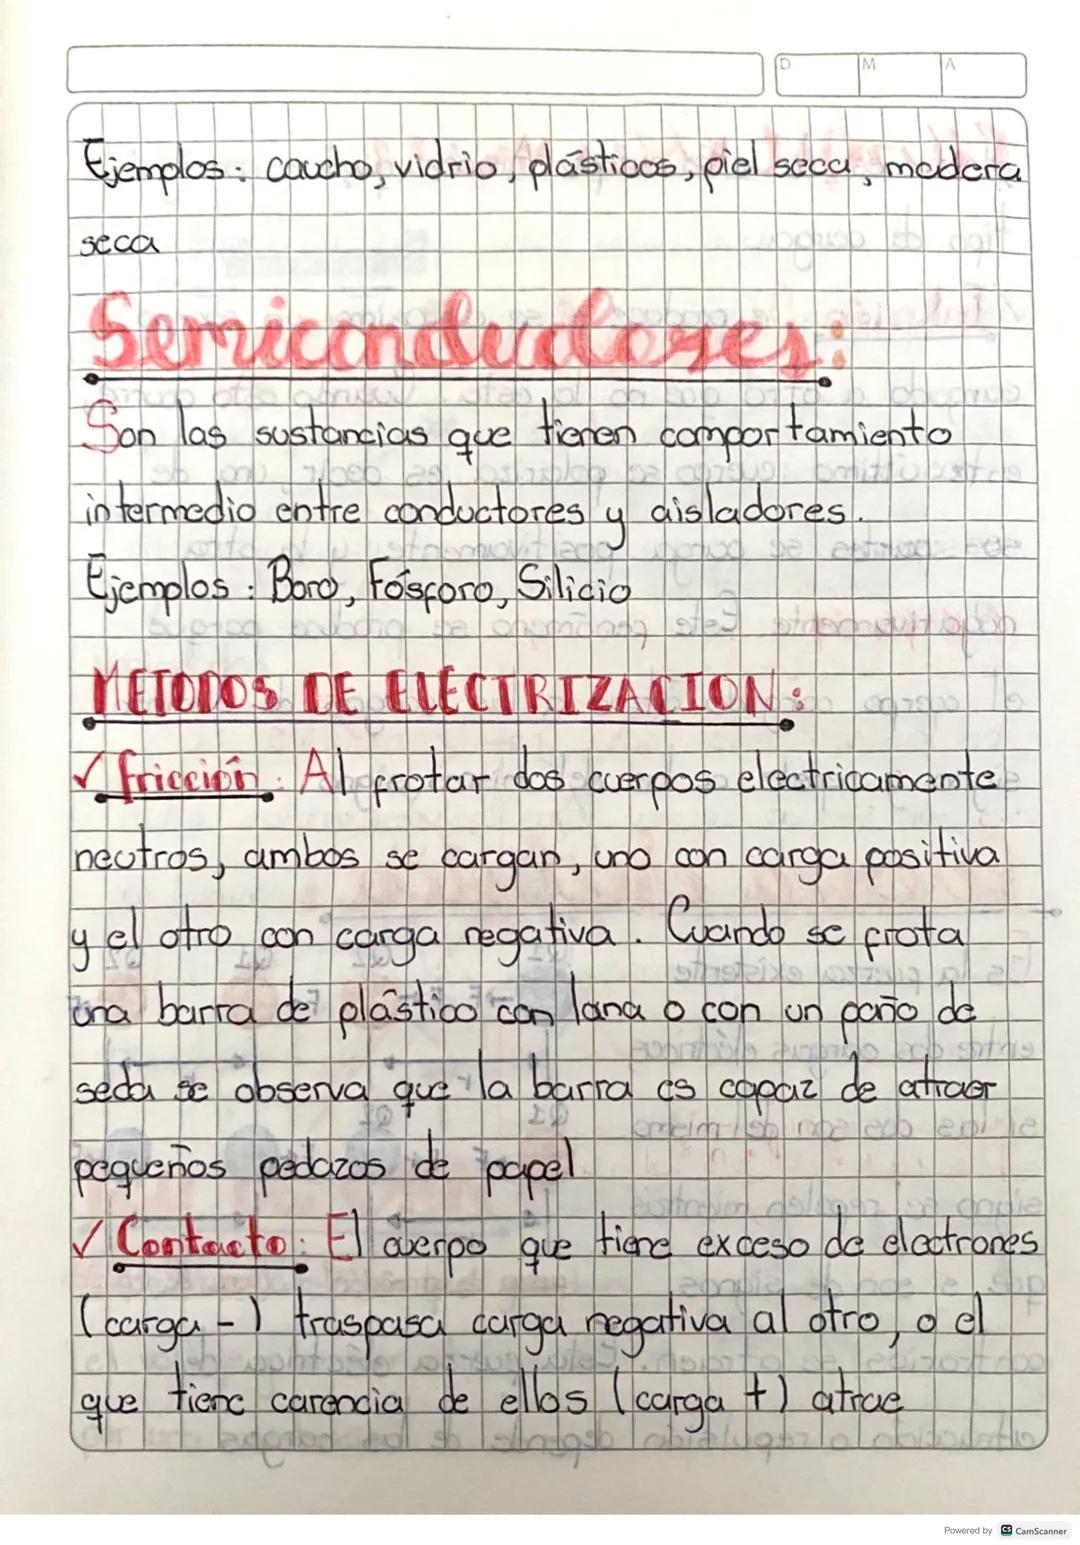 D M A
Ejemplos: caucho, vidrio, plásticos, piel seca, madera
seca
Semiconductores:
Son las sustancias que tienen comportamiento
intermedio entre conductores y aisladores.
Ejemplos: Boro, Fósforo, Silicio
METODOS DE ELECTRIZACION:
✓ fricción: Al frotar dos cuerpos electricamente
neutros, ambos se cargan, uno con carga positiva
y el otro con carga negativa. Cuando se frota
una barra de plástico con lana o con un paño de
seda se observa que la barra es capaz de atraer
pequeños pedazos de papel
✓ Contacto: El cuerpo que tiene exceso de electrones
(carga -) traspasa carga negativa al otro, o el
que tiene carencia de ellos (carga +) atrae
Powered by CS CamScanner